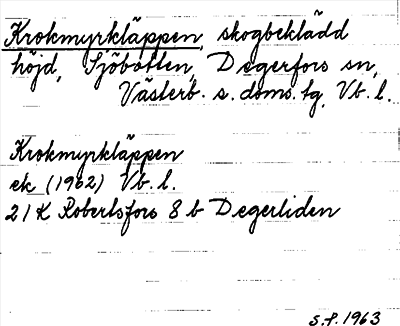 Krokmyrkläppen, skogbeklädd
höjd, Sjöbotten, Degerfors sn,
Västerb. s. doms. tg, Vb. l.
Krokmyrkläppen
ek (1962) Vb. l.
21 K Robertsfors 8 b Degerliden
S.F. 1963